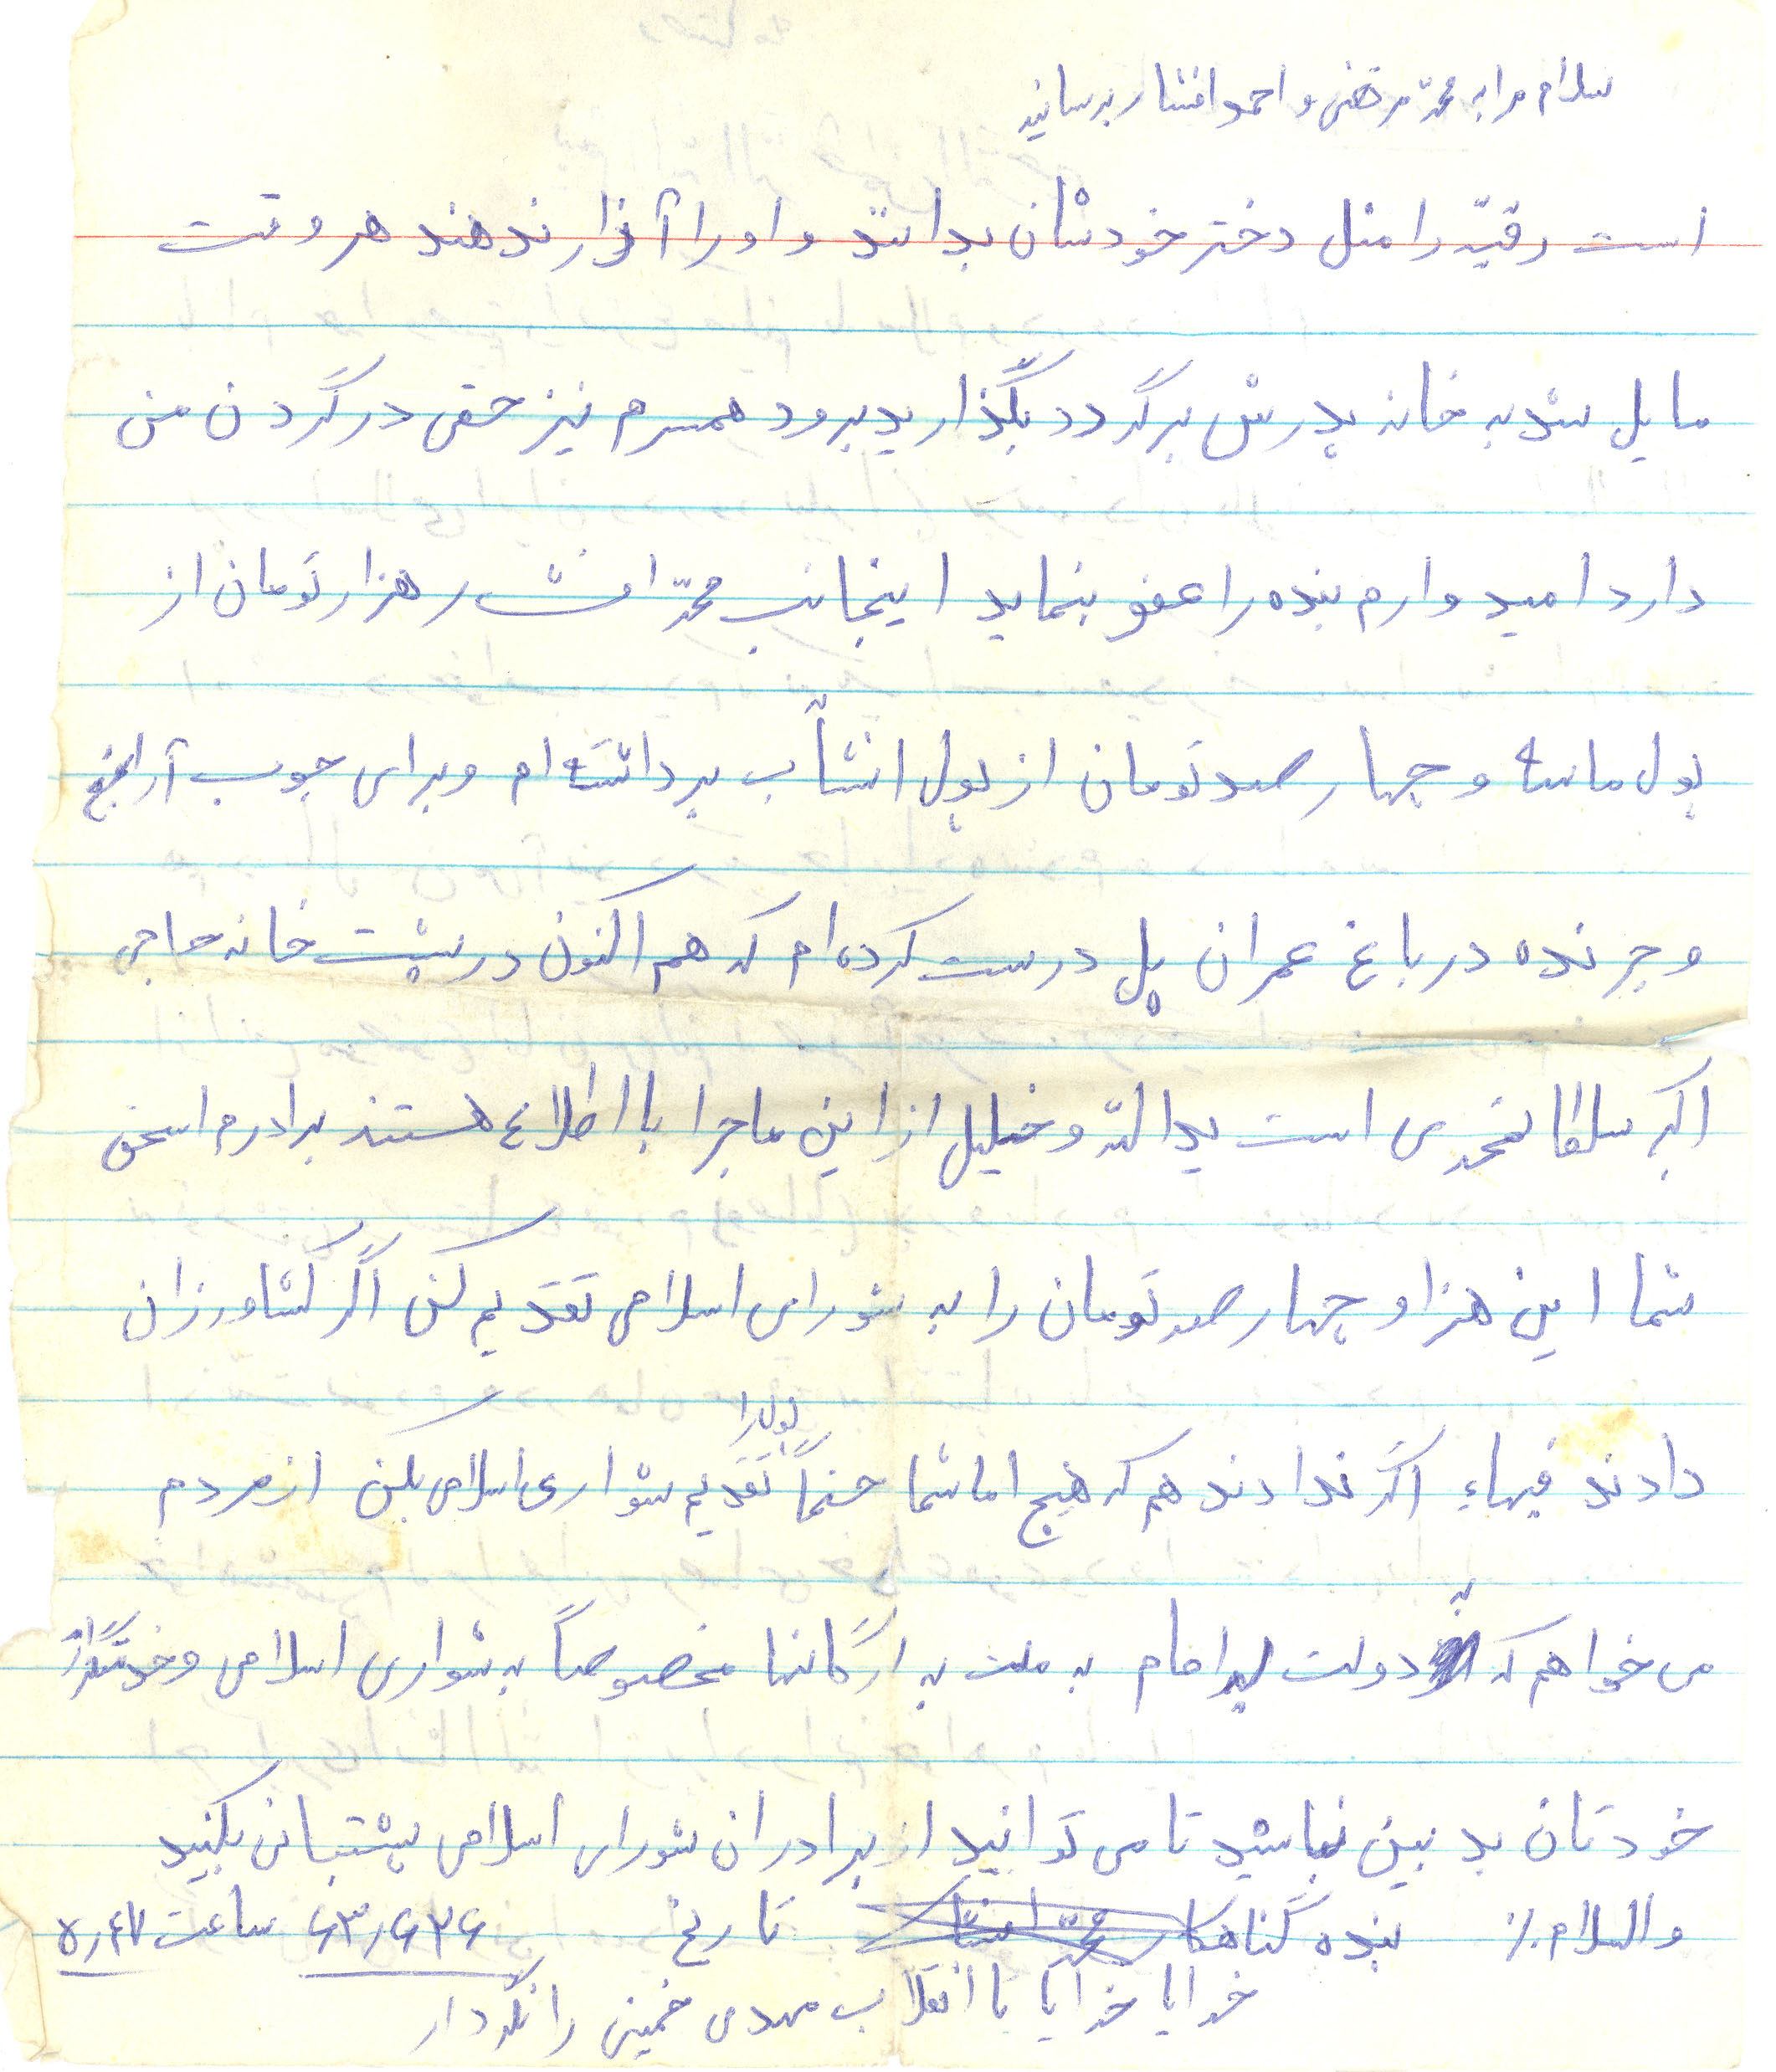 سلام مرا به محمد مرتضی و احمد افشار برسانید
است رقیّه را مثل دختر خودشان بدانند و او را آزار ندهند هر وقت
مایل شد به خانه پدرش برگردد بگذارید برود همسرم نیز حقی در گردن من
دارد امیدوارم بنده را عفو بنماید اینجانب محمّد افشار هزار تومان از
پول ماسه و چهارصد تومان از پول انشآب برداشته ام و برای جوب
و چرنده در باغ عمران پل درست کرده ام که هم اکنون در پشت خانه حاجی
اکبر سلطانمحمدی است یداللّه و خلیل از این ماجرا با اطلاع هستند برادرم اسحق
شما این هزار و چهارصد تومان را به شورای اسلامی تقدیم کن اگر کشاورزان
دادند فبهاء اگر ندادند هم که هیچ اما شما حتماً پول را تقدیم شواری اسلامی بکن از مردم
می خواهم که به دولت به امام به ملت به ارگانها مخصوصاً به شواری اسلامی و خدمتگزار
خودتان بد بین نباشید تا می توانید از برادران شورای اسلامی پشتبانی بکنید
والسلام ./ بنده گناهکار محمّد افشار تاریخ ۶۳٫۶٫۲۶ ساعت ۵٫۴۷
خدایا خدایا تا انقلاب مهدی خمینی را نگهدار